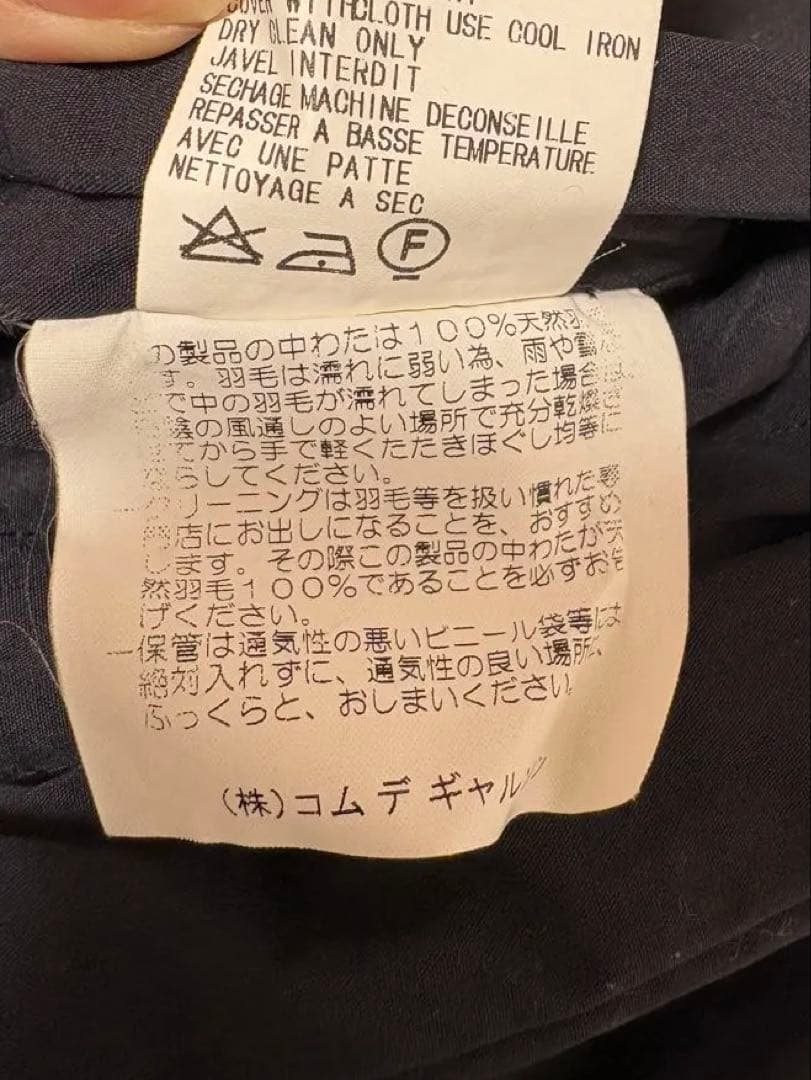 COVER WITH CLOTH USE COOL IRON
DRY CLEAN ONLY
JAVEL INTERDIT
SECHAGE MACHINE DECONSEILLE
REPASSER A BASSE TEMPERATURE
AVEC UNE PATTE
NETTOYAGE A SEC
F
の製品の中わたは100%天然羽
す。羽毛は濡れに弱い為、雨や
で中の羽毛が濡れてしまった場合は、
陰の風通しのよい場所で充分乾燥
てから手で軽くたたきほぐし均等に
らしてください。
クリーニングは羽毛等を扱い慣れた
店にお出しになることを、おすすめ
します。その際この製品の中わたが天
然羽毛100%であることを必ずお告
げください。
保管は通気性の悪いビニール袋等には
絶対入れずに、通気性の良い場所に
ふっくらと、おしまいください
(株)コム デ ギャルソン